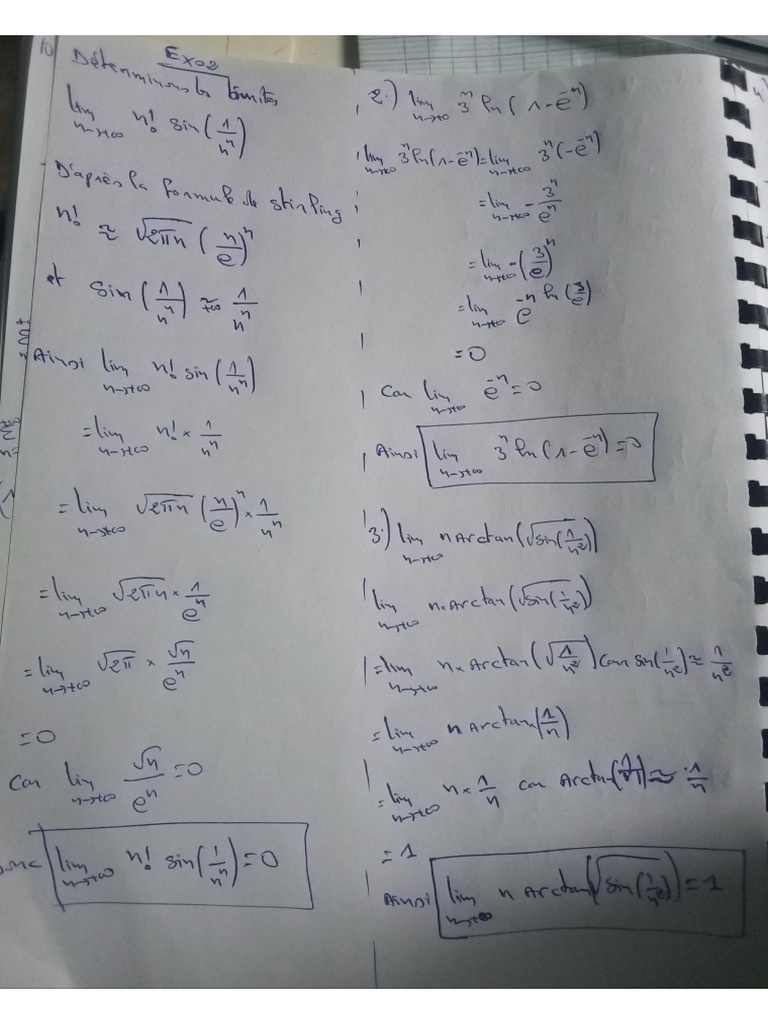 Exo2
1) Déterminons les limites
lim n→+∞ n! sin(1/n^n)
- D'après la formule de stirling
n! ≈ √(2πn) (n/e)^n
et sin(1/n^n) ≈ +∞ 1/n^n
Ainsi lim n→+∞ n! sin(1/n^n)
= lim n→+∞ n! × 1/n^n
= lim n→+∞ √(2πn) (n/e)^n × 1/n^n
= lim n→+∞ √(2πn) × 1/e^n
= lim n→+∞ √(2π) × √n/e^n
= 0
Car lim n→+∞ √n/e^n = 0
lim n→+∞ n! sin(1/n^n) = 0
2.) lim n→+∞ 3^n ln(1-e^-n)
lim n→+∞ 3^n ln(1-e^-n) = lim n→+∞ 3^n(-e^-n)
= lim n→+∞ - 3^n/e^n
= lim n→+∞ -(3/e)^n
= lim n→+∞ e^-n ln(3/e)
= 0
Car lim n→+∞ e^-n = 0
Ainsi lim n→+∞ 3^n ln(1-e^-n) = 0
3.) lim n→+∞ n Arctan(√sin(1/n²))
lim n→+∞ n×Arctan(√sin(1/n²))
= lim n→+∞ n×Arctan(√(1/n²)) car sin(1/n²) ≈ 1/n²
= lim n→+∞ n Arctan(1/n)
= lim n→+∞ n × 1/n car Arctan(1/n) ≈ 1/n
= 1
Ainsi lim n→+∞ n Arctan(√sin(1/n²)) = 1